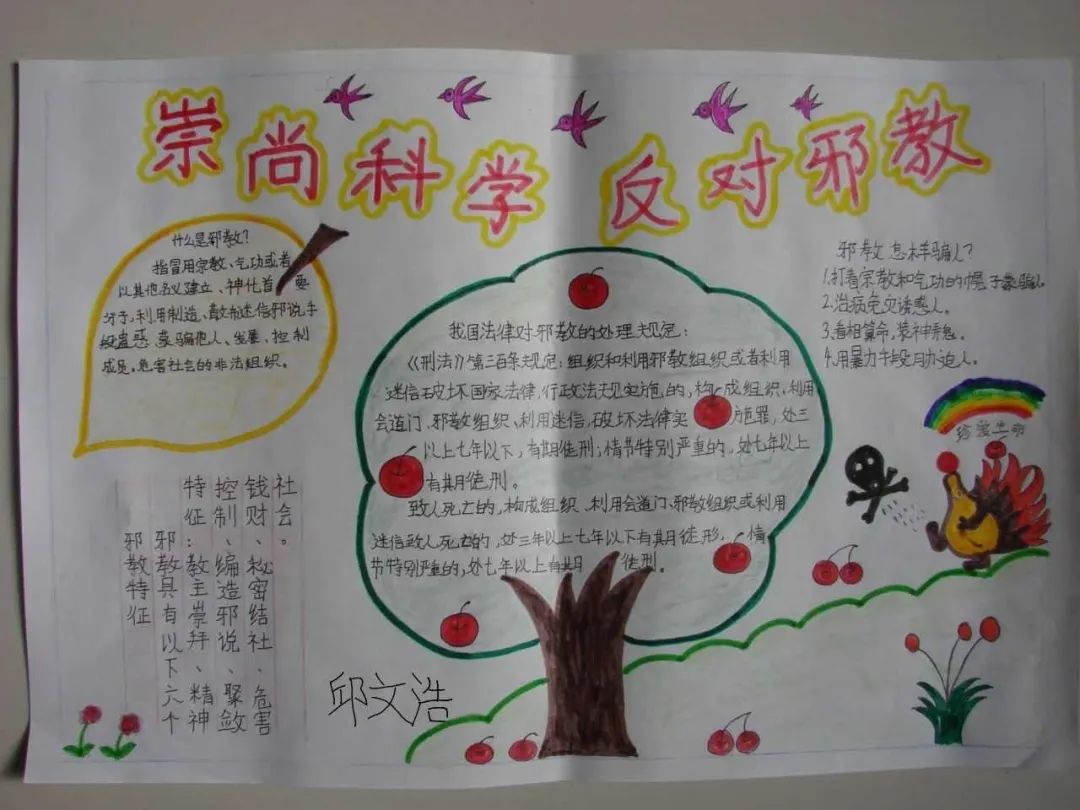 崇尚科学 反对邪教
什么是邪教？
指冒用宗教、气功或者
以其他名义建立、神化首要
分子，利用制造、散布迷信邪说手
段蛊惑、蒙骗他人、发展、控制
成员，危害社会的非法组织。
我国法律对邪教的处理规定：
《刑法》第三百条规定：组织和利用邪教组织或者利用
迷信破坏国家法律，行政法规实施的，构成组织、利用
会道门、邪教组织、利用迷信，破坏法律实施罪，处三
以上七年以下，有期徒刑；情节特别严重的，处七年以上
有期徒刑。
致人死亡的，构成组织、利用会道门、邪教组织或利用
迷信致人死亡的，处三年以上七年以下有期徒形，情
节特别严重的，处七年以上有期徒刑。
邪教怎样骗人？
1.打着宗教和气功的幌子蒙骗人
2.治病免灾诱惑人。
3.看相算命，装神弄鬼。
4.用暴力手段胁迫人。
珍爱生命
邪教特征
邪教具有以下六个
特征：教主崇拜、精神
控制、编造邪说、聚敛
钱财、秘密结社、危害
社会。
邱文浩